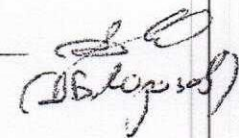 (Д.Б. Морозов)